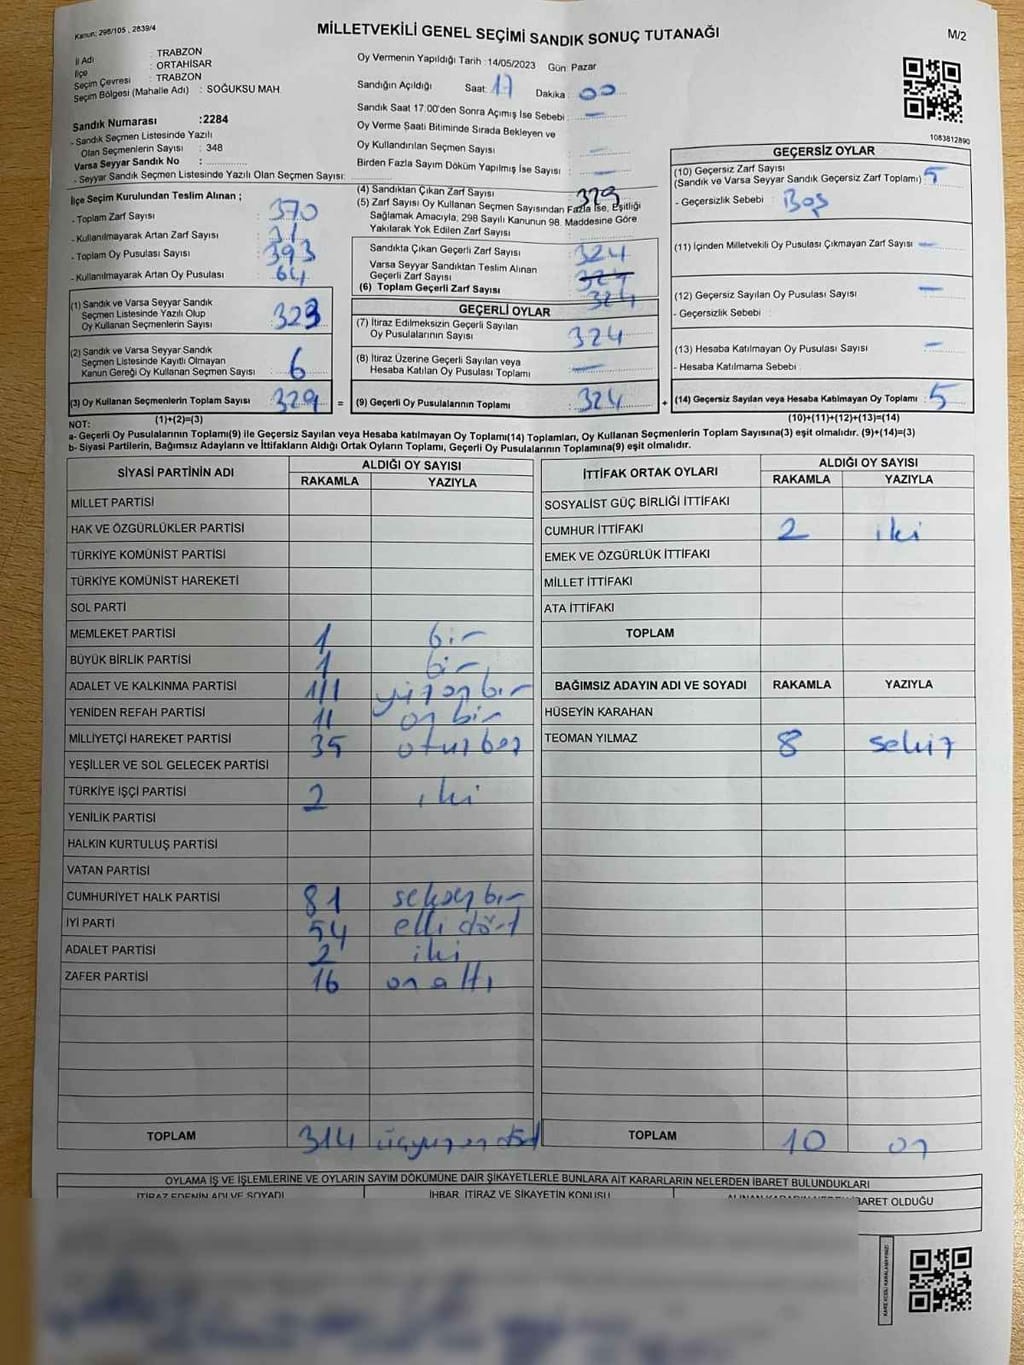 Kanun: 298/105 , 2839/4
MİLLETVEKİLİ GENEL SEÇİMİ SANDIK SONUÇ TUTANAĞI
M/2
İl Adı : TRABZON
İlçe : ORTAHİSAR
Seçim Çevresi : TRABZON
Seçim Bölgesi (Mahalle Adı) : SOĞUKSU MAH.
Sandık Numarası :2284
- Sandık Seçmen Listesinde Yazılı
Olan Seçmenlerin Sayısı : 348
Varsa Seyyar Sandık No :
- Seyyar Sandık Seçmen Listesinde Yazılı Olan Seçmen Sayısı:
Oy Vermenin Yapıldığı Tarih :14/05/2023 Gün: Pazar
Sandığın Açıldığı Saat: 17 Dakika : 00
Sandık Saat 17.00'den Sonra Açımış İse Sebebi : —
Oy Verme Saati Bitiminde Sırada Bekleyen ve
Oy Kullandırılan Seçmen Sayısı : —
Birden Fazla Sayım Döküm Yapılmış İse Sayısı : —
1083812890
İlçe Seçim Kurulundan Teslim Alınan ;
- Toplam Zarf Sayısı : 370
- Kullanılmayarak Artan Zarf Sayısı :
- Toplam Oy Pusulası Sayısı : 393
- Kullanılmayarak Artan Oy Pusulası : 64
(1) Sandık ve Varsa Seyyar Sandık
Seçmen Listesinde Yazılı Olup
Oy Kullanan Seçmenlerin Sayısı : 323
(2) Sandık ve Varsa Seyyar Sandık
Seçmen Listesinde Kayıtlı Olmayan
Kanun Gereği Oy Kullanan Seçmen Sayısı : 6
(3) Oy Kullanan Seçmenlerin Toplam Sayısı : 329 =
(1)+(2)=(3)
(4) Sandıktan Çıkan Zarf Sayısı : 329
(5) Zarf Sayısı Oy Kullanan Seçmen Sayısından Fazla İse, Eşitliği
Sağlamak Amacıyla, 298 Sayılı Kanunun 98. Maddesine Göre
Yakılarak Yok Edilen Zarf Sayısı :
Sandıkta Çıkan Geçerli Zarf Sayısı : 324
Varsa Seyyar Sandıktan Teslim Alınan
Geçerli Zarf Sayısı : 324
(6) Toplam Geçerli Zarf Sayısı : 324
GEÇERLİ OYLAR
(7) İtiraz Edilmeksizin Geçerli Sayılan
Oy Pusulalarının Sayısı : 324
(8) İtiraz Üzerine Geçerli Sayılan veya
Hesaba Katılan Oy Pusulası Toplamı : —
(9) Geçerli Oy Pusulalarının Toplamı : 324 +
GEÇERSİZ OYLAR
(10) Geçersiz Zarf Sayısı
(Sandık ve Varsa Seyyar Sandık Geçersiz Zarf Toplamı) : 5
- Geçersizlik Sebebi : Boş
(11) İçinden Milletvekili Oy Pusulası Çıkmayan Zarf Sayısı : —
(12) Geçersiz Sayılan Oy Pusulası Sayısı : —
- Geçersizlik Sebebi :
(13) Hesaba Katılmayan Oy Pusulası Sayısı : —
- Hesaba Katılmama Sebebi :
(14) Geçersiz Sayılan veya Hesaba Katılmayan Oy Toplamı : 5
(10)+(11)+(12)+(13)=(14)
NOT:
a- Geçerli Oy Pusulalarının Toplamı(9) ile Geçersiz Sayılan veya Hesaba katılmayan Oy Toplamı(14) Toplamları, Oy Kullanan Seçmenlerin Toplam Sayısına(3) eşit olmalıdır. (9)+(14)=(3)
b- Siyasi Partilerin, Bağımsız Adayların ve İttifakların Aldığı Ortak Oyların Toplamı, Geçerli Oy Pusulalarının Toplamına(9) eşit olmalıdır.
SİYASİ PARTİNİN ADI ALDIĞI OY SAYISI
RAKAMLA YAZIYLA
MİLLET PARTİSİ
HAK VE ÖZGÜRLÜKLER PARTİSİ
TÜRKİYE KOMÜNİST PARTİSİ
TÜRKİYE KOMÜNİST HAREKETİ
SOL PARTİ
MEMLEKET PARTİSİ 1 bir
BÜYÜK BİRLİK PARTİSİ 1 bir
ADALET VE KALKINMA PARTİSİ 111 yüzonbir
YENİDEN REFAH PARTİSİ 11 on bir
MİLLİYETÇİ HAREKET PARTİSİ 35 otuzbeş
YEŞİLLER VE SOL GELECEK PARTİSİ
TÜRKİYE İŞÇİ PARTİSİ 2 iki
YENİLİK PARTİSİ
HALKIN KURTULUŞ PARTİSİ
VATAN PARTİSİ
CUMHURİYET HALK PARTİSİ 81 seksen bir
İYİ PARTİ 54 elli dört
ADALET PARTİSİ 2 iki
ZAFER PARTİSİ 16 on altı
TOPLAM 314 üçyüzondört
İTTİFAK ORTAK OYLARI ALDIĞI OY SAYISI
RAKAMLA YAZIYLA
SOSYALİST GÜÇ BİRLİĞİ İTTİFAKI
CUMHUR İTTİFAKI 2 iki
EMEK VE ÖZGÜRLÜK İTTİFAKI
MİLLET İTTİFAKI
ATA İTTİFAKI
TOPLAM
BAĞIMSIZ ADAYIN ADI VE SOYADI RAKAMLA YAZIYLA
HÜSEYİN KARAHAN
TEOMAN YILMAZ 8 sekiz
TOPLAM 10 on
OYLAMA İŞ VE İŞLEMLERİNE VE OYLARIN SAYIM DÖKÜMÜNE DAİR ŞİKAYETLERLE BUNLARA AİT KARARLARIN NELERDEN İBARET BULUNDUKLARI
İTİRAZ EDENİN ADI VE SOYADI İHBAR, İTİRAZ VE ŞİKAYETİN KONUSU ALINAN KARARIN NEDEN İBARET OLDUĞU